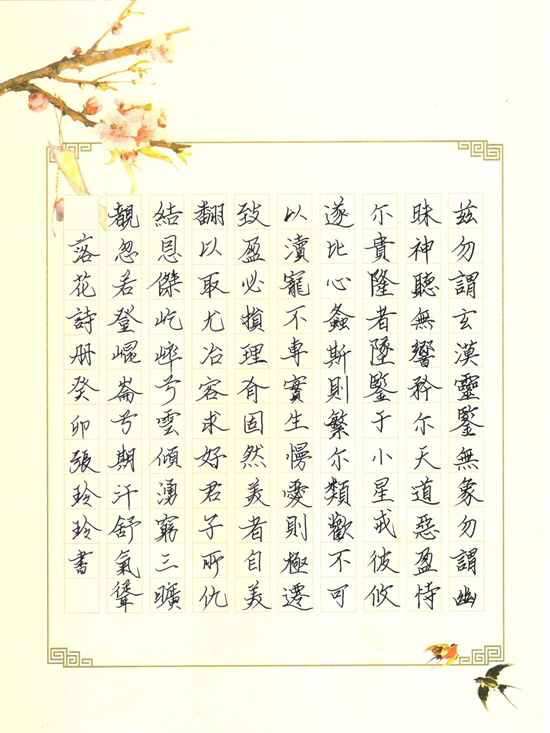 茲勿謂玄漠靈鑒無象勿謂幽
昧神聽無響矜尔天道惡盈恃
尔貴隆者墜鑒于小星戒彼攸
遂比心螽斯則繁尔類歡不可
以瀆寵不專實生慢愛則極遷
致盈必損理有固然美者自美
翩以取尤冶容求好君子所仇
結恩傑屹崪兮雲傾湧窮三曠
覩忽若登崐崙兮期汗舒氣
落花詩册癸卯張玲玲書